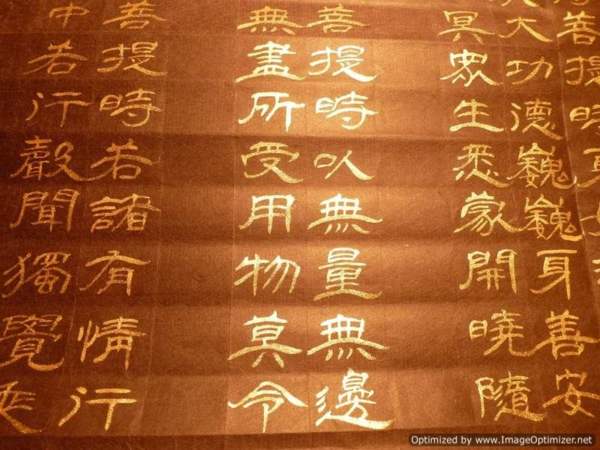 菩提時
大功德巍巍身善安
冥眾生悉蒙開曉隨
菩提時以無量無邊
無盡所受用物莫令
菩提時若諸有情行
中若行聲聞獨覺乘
Optimized by www.ImageOptimizer.net